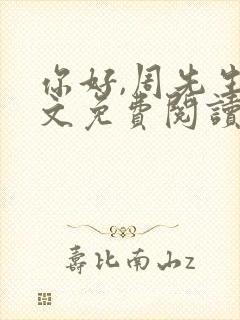 你好,周先生
文免費閱讀
壽比南山z